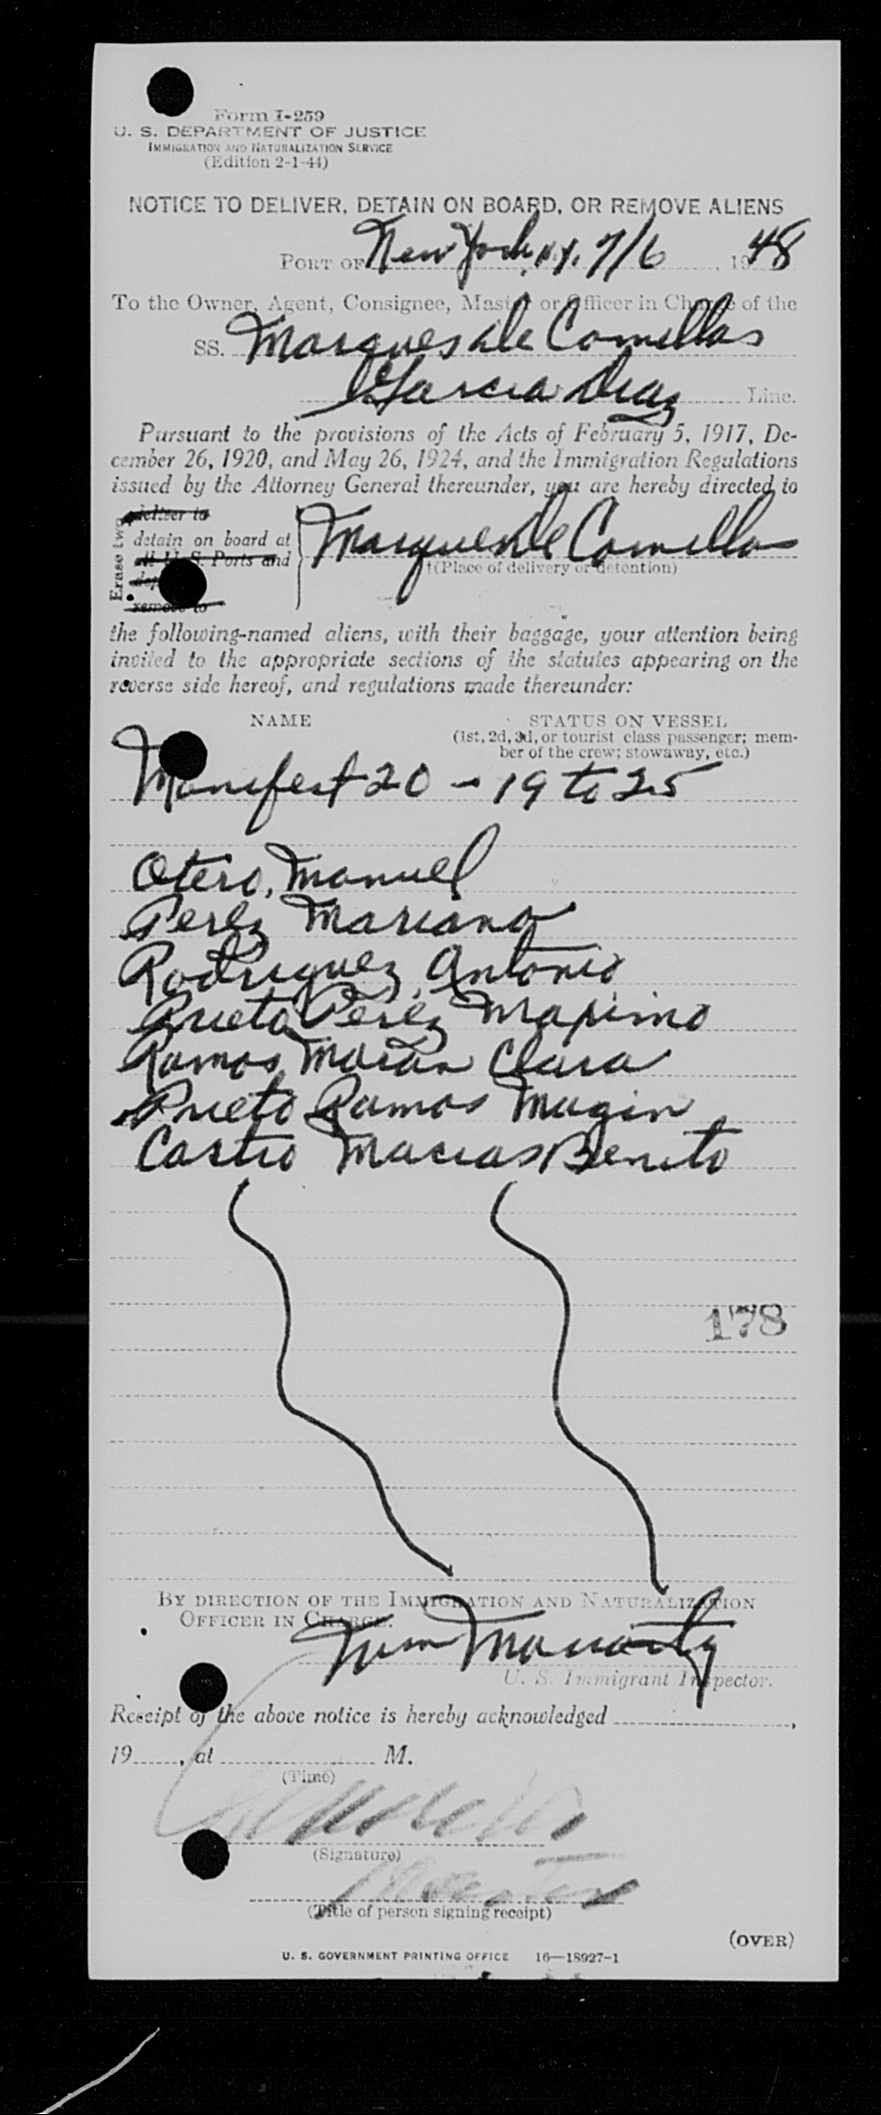 Form I-259
U. S. DEPARTMENT OF JUSTICE
IMMIGRATION AND NATURALIZATION SERVICE
(Edition 2-1-44)
NOTICE TO DELIVER, DETAIN ON BOARD, OR REMOVE ALIENS
PORT OF New York, N.Y. 7/6, 1948
To the Owner, Agent, Consignee, Master or Officer in Charge of the
SS. Marques de Comillas
Garcia Diaz Line.
Pursuant to the provisions of the Acts of February 5, 1917, De-
cember 26, 1920, and May 26, 1924, and the Immigration Regulations
issued by the Attorney General thereunder, you are hereby directed to
Erase two
deliver to
detain on board at
all U. S. Ports and
remove to
Marques de Comillas
†(Place of delivery or detention)
the following-named aliens, with their baggage, your attention being
invited to the appropriate sections of the statutes appearing on the
reverse side hereof, and regulations made thereunder:
NAME STATUS ON VESSEL
(1st, 2d, 3d, or tourist class passenger; mem-
ber of the crew; stowaway, etc.)
Manifest 20 - 19 to 25
Otero, Manuel
Perez, Mariano
Rodriguez, Antonio
Prieto Perez Maximo
Ramos Moran Clara
Prieto Ramos Magin
Castro Macias Benito
178
BY DIRECTION OF THE IMMIGRATION AND NATURALIZATION
OFFICER IN CHARGE.
Moriarty
U. S. Immigrant Inspector.
Receipt of the above notice is hereby acknowledged ,
19 , at M.
(Time)
(Signature)
Master
(Title of person signing receipt)
(OVER)
U. S. GOVERNMENT PRINTING OFFICE 16—18927-1